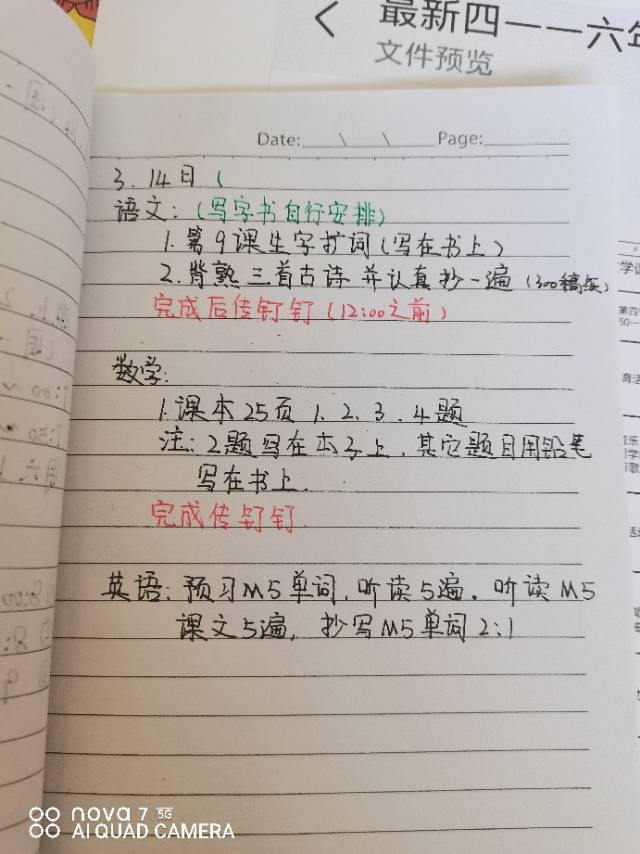 最新四——六年
文件预览
Date:____\____\____Page:________
3.14日(
语文:(写字书自行安排)
1.第9课生字扩词(写在书上)
2.背熟三首古诗并认真抄一遍(300稿纸)
完成后传钉钉(12:00之前)
数学:
1.课本25页1、2、3、4题
注:2题写在本子上,其它题目用铅笔
写在书上.
完成传钉钉
英语:预习M5单词,听读5遍.听读M5
课文5遍,抄写M5单词2:1
nova 7 5G
AI QUAD CAMERA